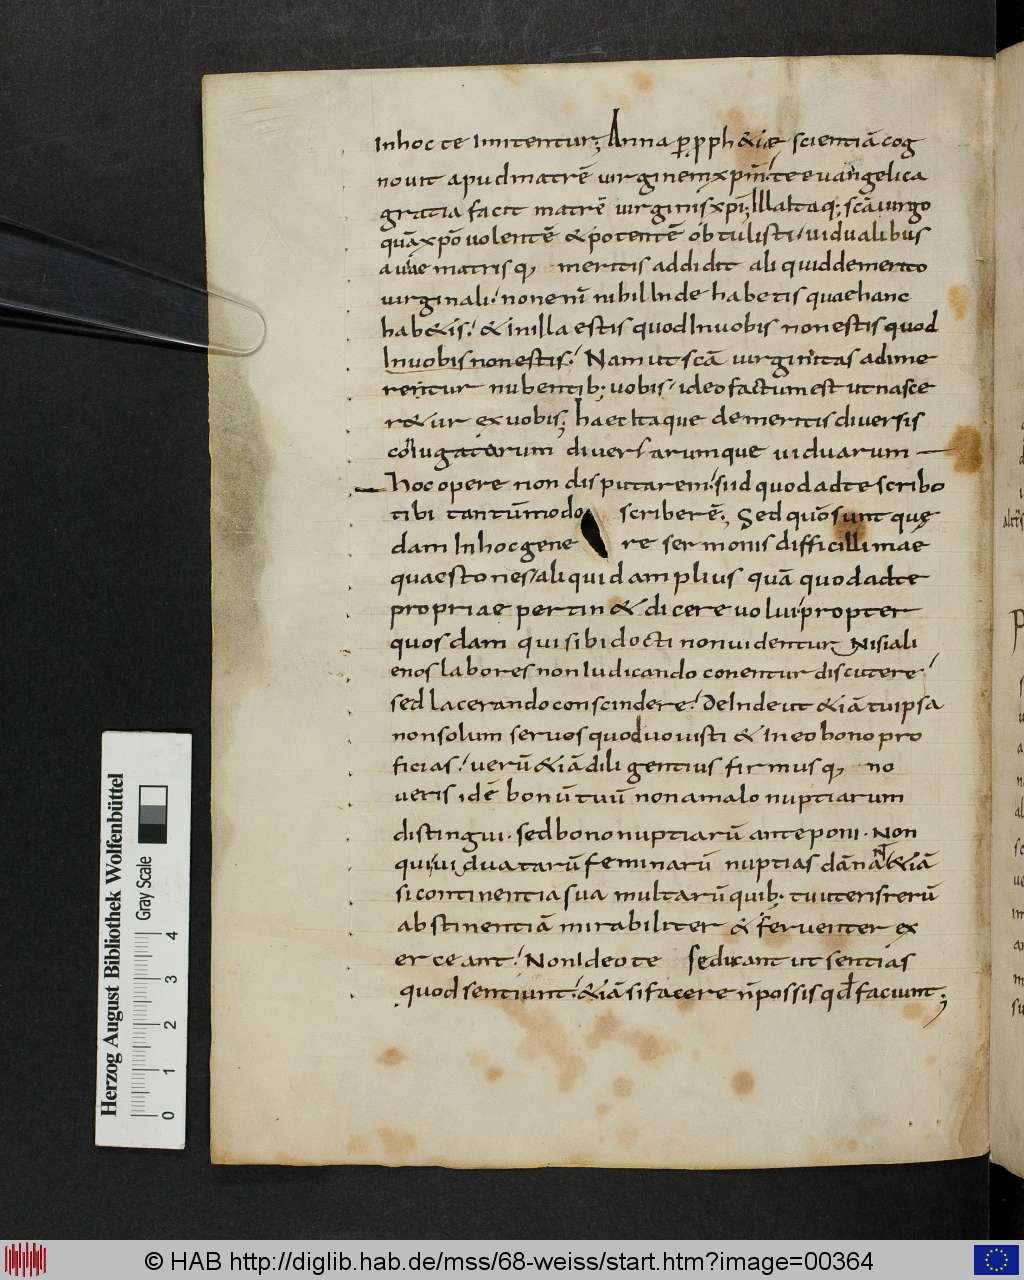 Inhoc te imitentur; Anna p̱ pph&iæ scientiā cog
nouit apud matrē uirginem xp̄m; te euangelica
gratia facit matrē uirginis xp̄i; Illa Itaq; scā uirgo
quā xp̄o uolentē & potentē obtulisti uidualibus
auiae matrisq; meritis addidit aliquid de merito
uirginali. non enī nihil Inde habetis quae hanc
hab&is. & in illa estis quod In uobis non estis quod
In uobis non estis. Nam ut scā uirginitas adime
rentur nubentib; uobis ideo factum est ut nasce
r&ur ex uobis; haec Itaque de meritis diuersis
coniugatarum diuersarumque uiduarum
hoc opere non disputarem. si id quod ad te scribo
tibi tantūmodo scriberē; Sed quō sunt quę
dam In hoc genere sermonis difficillimae
quaestiones aliquid amplius quā quod ad te
propriae pertin& dicere uolui propter
quosdam qui sibi docti non uidentur Nisi ali
enos labores non Iudicando conentur discutere
sed lacerando conscindere. DeInde ut &iā tu ipsa
non solum seruos quod uouisti & In eo bono pro
ficias. uerū &iā diligentius firmusq; no
ueris idē bonū tuū non a malo nuptiarum
distingui. sed bono nuptiarū anteponi. Non
qui uiduatarū feminarū nuptias dānant &iā
si continentia sua multarū quib; tu uteris rerū
abstinentiā mirabiliter & feruenter ex
erceant. Non Ideo te seducant ut sentias
quod sentiunt. &iā si facere n̄ possis qđ faciunt;
Herzog August Bibliothek Wolfenbüttel
Gray Scale
0 1 2 3 4
© HAB http://diglib.hab.de/mss/68-weiss/start.htm?image=00364